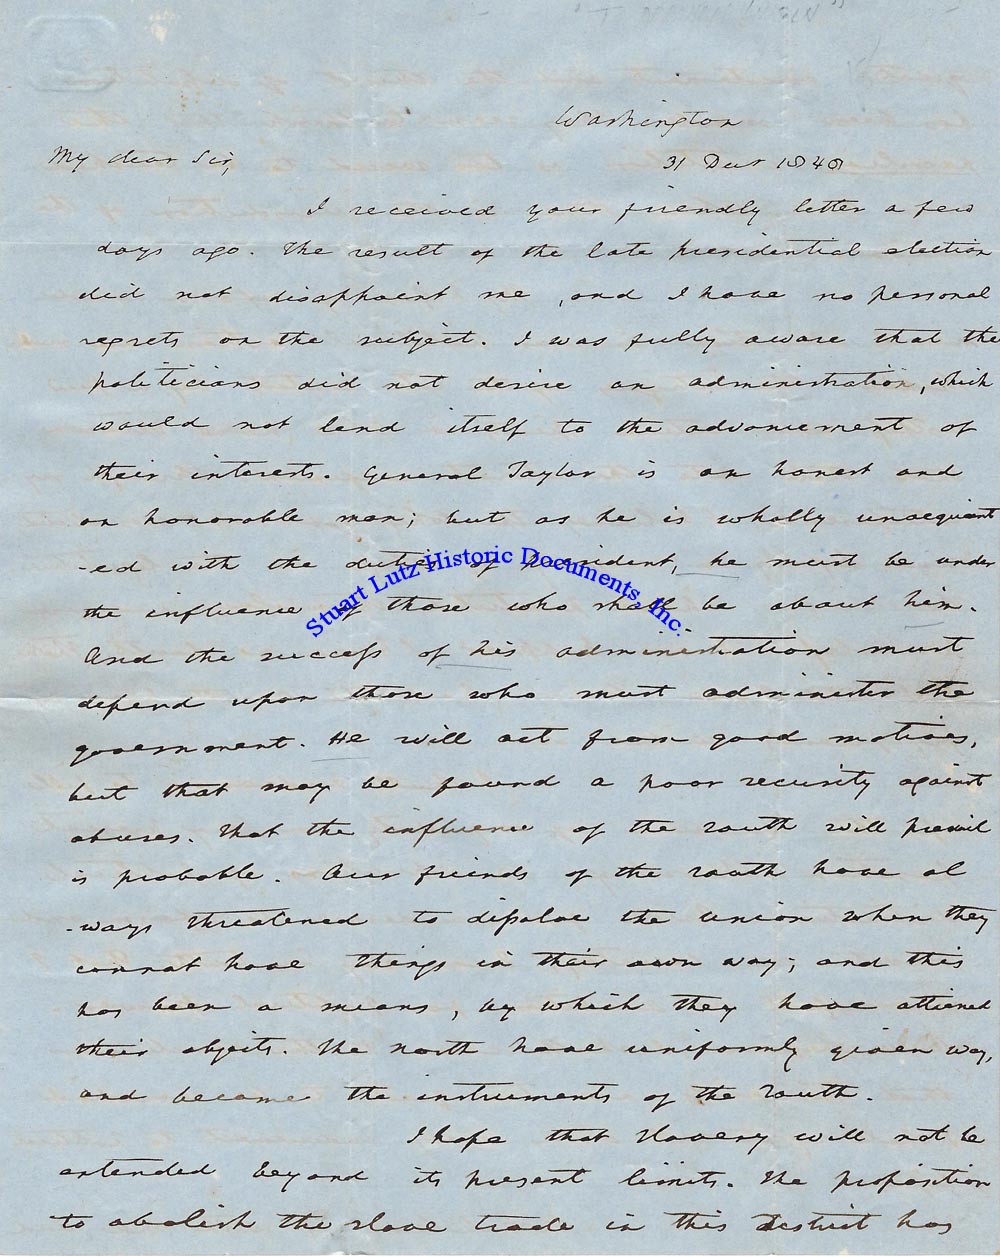 Washington
31 Decr 1848
My dear Sir,
I received your friendly letter a few
days ago. The result of the late presidential election
did not disappoint me, and I have no personal
regrets on the subject. I was fully aware that the
politicians did not desire an administration, which
would not lend itself to the advancement of
their interests. General Taylor is an honest and
an honorable man; but as he is wholly unacquaint
-ed with the duties of President, he must be under
the influence of those who shall be about him.
And the success of his administration must
depend upon those who must administer the
government. He will act from good motives,
but that may be found a poor security against
abuses. That the influence of the south will prevail
is probable. Our friends of the south have al
-ways threatened to dissolve the union when they
cannot have things in their own way; and this
has been a means, by which they have attained
their objects. The north have uniformly given way,
and become the instruments of the South.
I hope that slavery will not be
extended beyond its present limits. The proposition
to abolish the slave trade in this district has
Stuart Lutz Historic Documents, Inc.